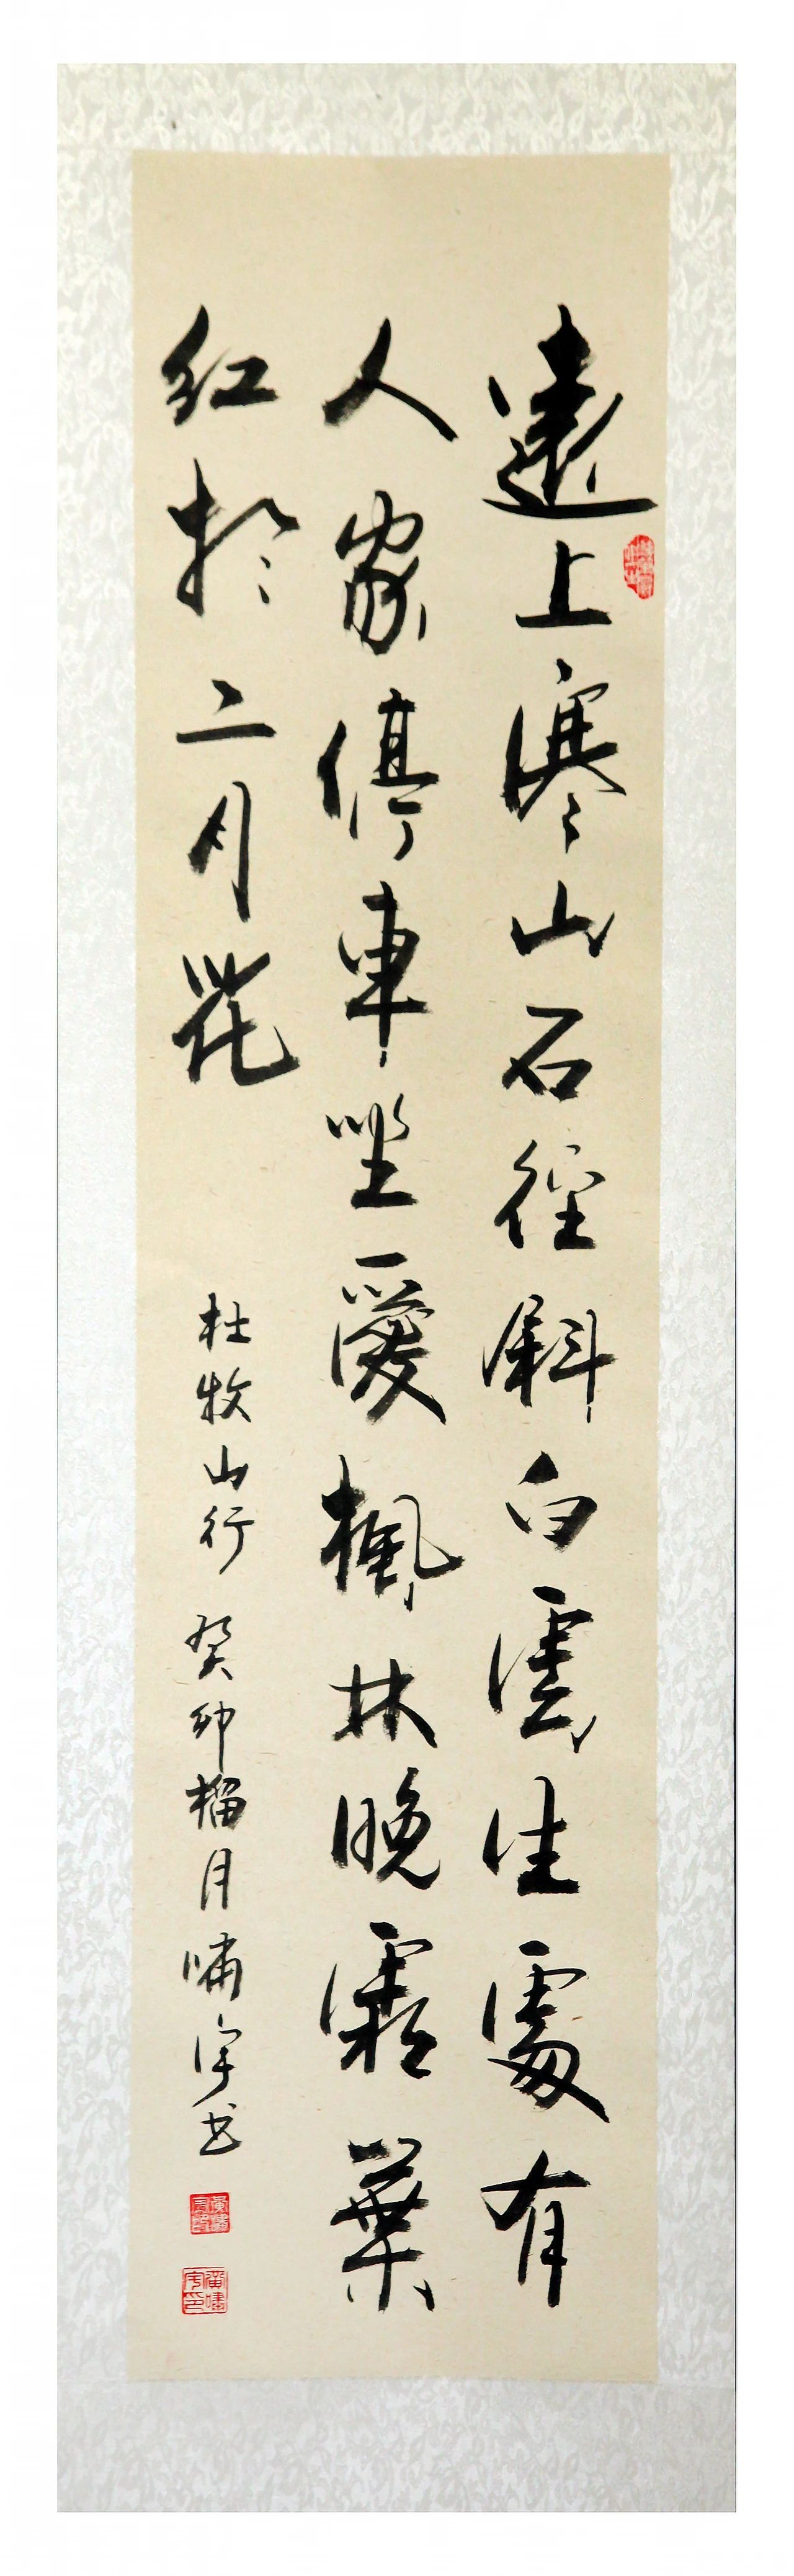 遠上寒山石徑斜白雲生處有
人家停車坐愛楓林晚霜葉
紅於二月花
杜牧山行 癸卯榴月嘯宇书